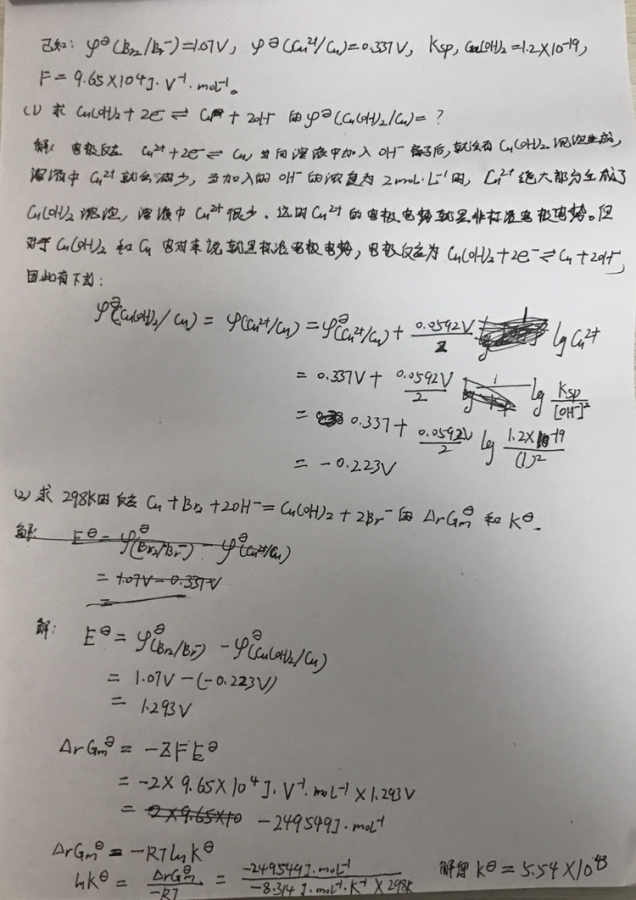 已知: φ⊖(Br₂/Br⁻)=1.07V, φ⊖(Cu²⁺/Cu)=0.337V, Ksp, Cu(OH)₂=1.2×10⁻¹⁹,
F=9.65×10⁴J·V⁻¹·mol⁻¹。
(1) 求 Cu(OH)₂+2e⁻⇌Cu+2OH⁻ 的φ⊖(Cu(OH)₂/Cu)=?
解: 电极反应 Cu²⁺+2e⁻⇌Cu, 当向溶液中加入 OH⁻ 离子后, 就会有 Cu(OH)₂ 沉淀生成,
溶液中 Cu²⁺ 就会减少, 当加入的 OH⁻ 的浓度为 2mol·L⁻¹时, Cu²⁺ 绝大部分生成了
Cu(OH)₂ 沉淀, 溶液中 Cu²⁺ 很少. 这时 Cu²⁺ 的电极电势就是非标准电极电势。但
对于 Cu(OH)₂ 和 Cu 电对来说就是标准电极电势, 电极反应为 Cu(OH)₂+2e⁻⇌Cu+2OH⁻,
因此有下式:
φ⊖(Cu(OH)₂/Cu) = φ(Cu²⁺/Cu) = φ⊖(Cu²⁺/Cu) + 0.0592V/2 lg Cu²⁺
= 0.337V + 0.0592V/2 lg Ksp/[OH⁻]²
= 0.337 + 0.0592V/2 lg 1.2×10⁻¹⁹/(1)²
= -0.223V
(2) 求 298K时反应 Cu+Br₂+2OH⁻=Cu(OH)₂+2Br⁻ 的 ΔrGm⊖ 和 K⊖.
解: E⊖ = φ⊖(Br₂/Br⁻) - φ⊖(Cu²⁺/Cu)
= 1.07V - 0.337V
=
解: E⊖ = φ⊖(Br₂/Br⁻) - φ⊖(Cu(OH)₂/Cu)
= 1.07V - (-0.223V)
= 1.293V
ΔrGm⊖ = -ZFE⊖
= -2×9.65×10⁴J·V⁻¹·mol⁻¹×1.293V
= 2×9.65×10 -249549J·mol⁻¹
ΔrGm⊖ = -RTlnK⊖
lnK⊖ = ΔrGm⊖/-RT = -249549J·mol⁻¹/-8.314J·mol⁻¹·K⁻¹×298K 解得 K⊖=5.54×10⁴³